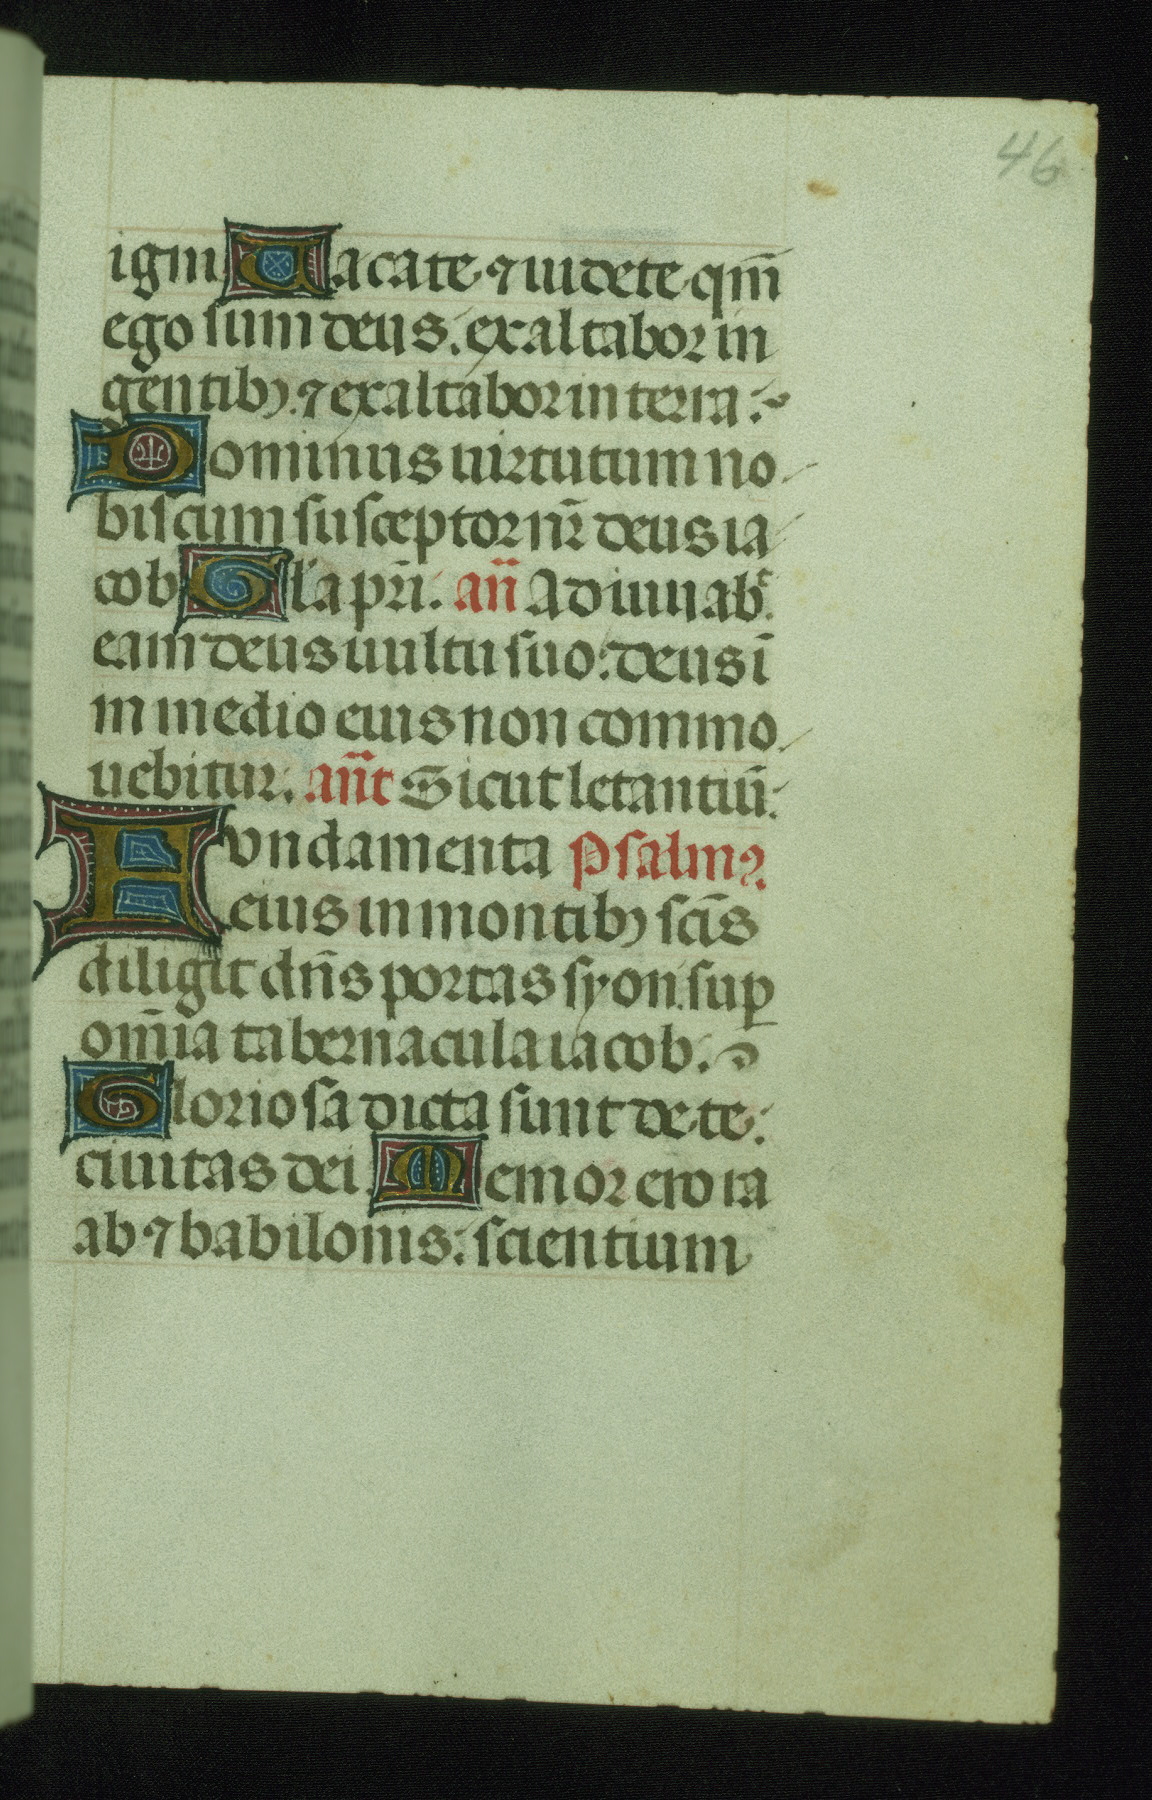 46
igni Uacate ⁊ uidete qm̄
ego sum deus. exaltabor in
gentibꝫ. ⁊ exaltabor in terra.
Dominus uirtutum no
biscum susceptor nr̄ deus ia
cob Gl'a pr̄i. an̄ Adiuuabᵗ
eam deus uultu suo: deus ī
in medio eius non commo
uebitur. an̄t Sicut letantiū.
Fundamenta Psalmꝰ
eius in montibꝫ sc̄is
diligit dn̄s portas syon. suꝑ
om̄ia tabernacula iacob.
Gloriosa dicta sunt de te.
ciuitas dei. Memor ero ra
ab ⁊ babilonis: scientium